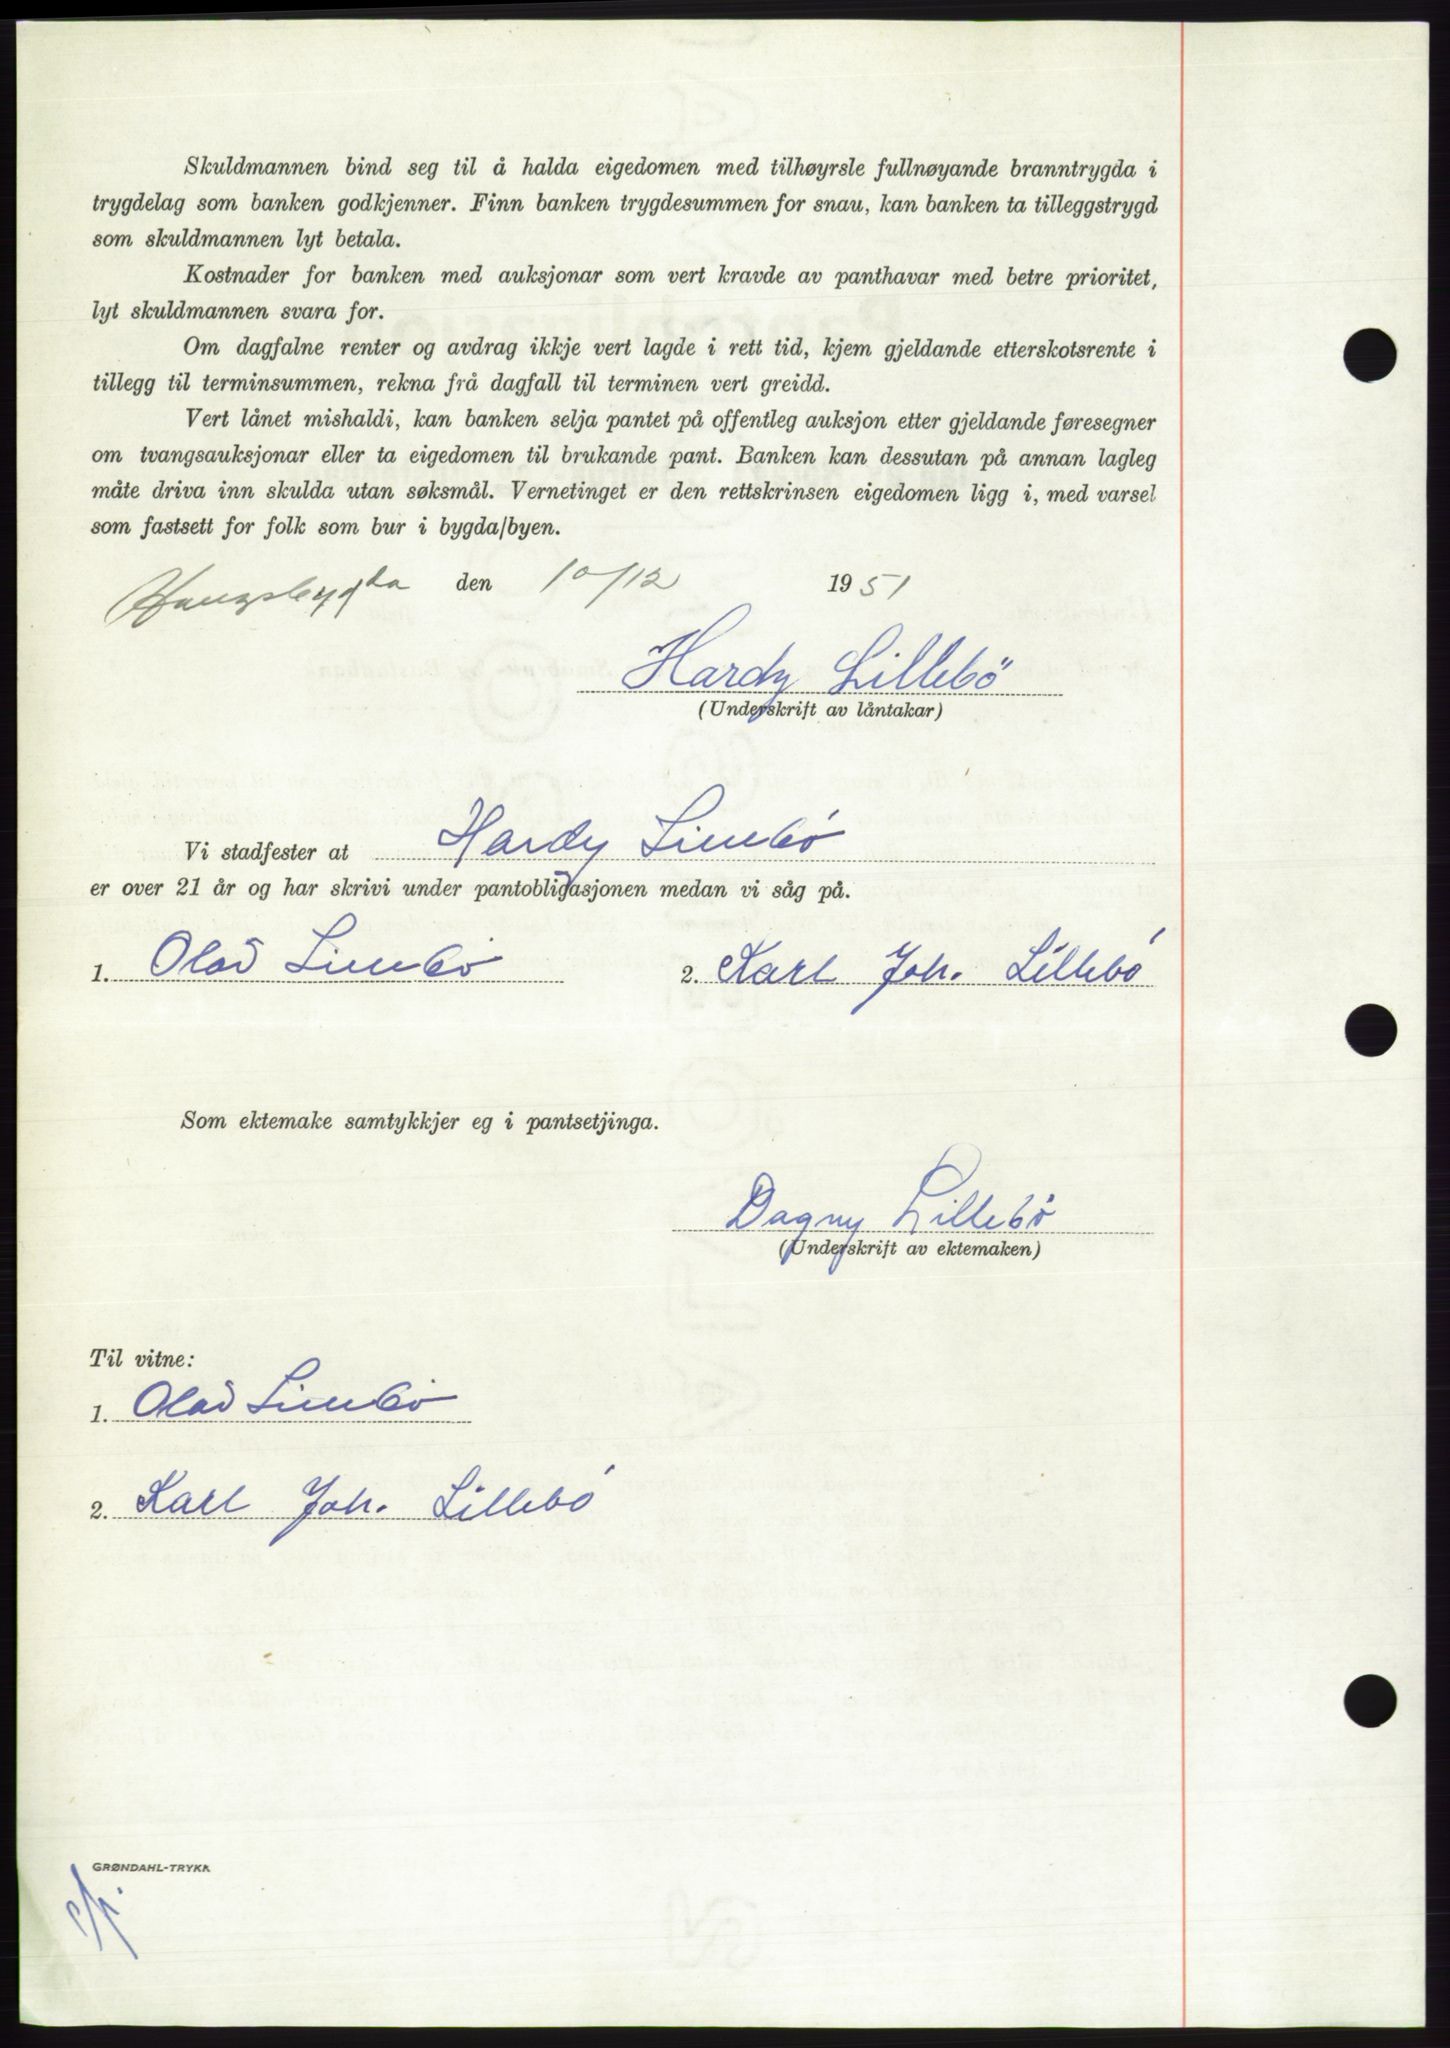 Skuldmannen bind seg til å halda eigedomen med tilhøyrsle fullnøyande branntrygda i
trygdelag som banken godkjenner. Finn banken trygdesummen for snau, kan banken ta tilleggstrygd
som skuldmannen lyt betala.
Kostnader for banken med auksjonar som vert kravde av panthavar med betre prioritet,
lyt skuldmannen svara for.
Om dagfalne renter og avdrag ikkje vert lagde i rett tid, kjem gjeldande etterskotsrente i
tillegg til terminsummen, rekna frå dagfall til terminen vert greidd.
Vert lånet mishaldi, kan banken selja pantet på offentleg auksjon etter gjeldande føresegner
om tvangsauksjonar eller ta eigedomen til brukande pant. Banken kan dessutan på annan lagleg
måte driva inn skulda utan søksmål. Vernetinget er den rettskrinsen eigedomen ligg i, med varsel
som fastsett for folk som bur i bygda/byen.
den 10/12 1951
Hardy Lillebö
(Underskrift av låntakar)
Vi stadfester at Hardy Lillebö
er over 21 år og har skrivi under pantobligasjonen medan vi såg på.
1. Olav Lillebö 2. Karl Joh. Lillebö
Som ektemake samtykkjer eg i pantsetjinga.
Dagny Lillebö
(Underskrift av ektemaken)
Til vitne:
1. Olav Lillebö
2. Karl Joh. Lillebö
GRØNDAHL-TRYKK